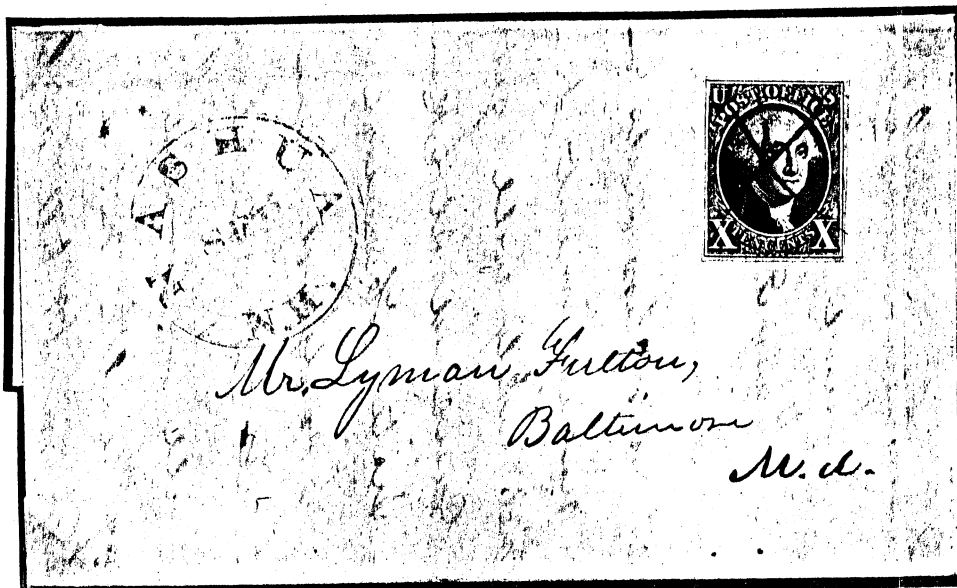 NASHUA
N.H.
U S
POST OFFICE
X TEN CENTS X
Mr. Lyman Fulton,
Baltimore
M.d.